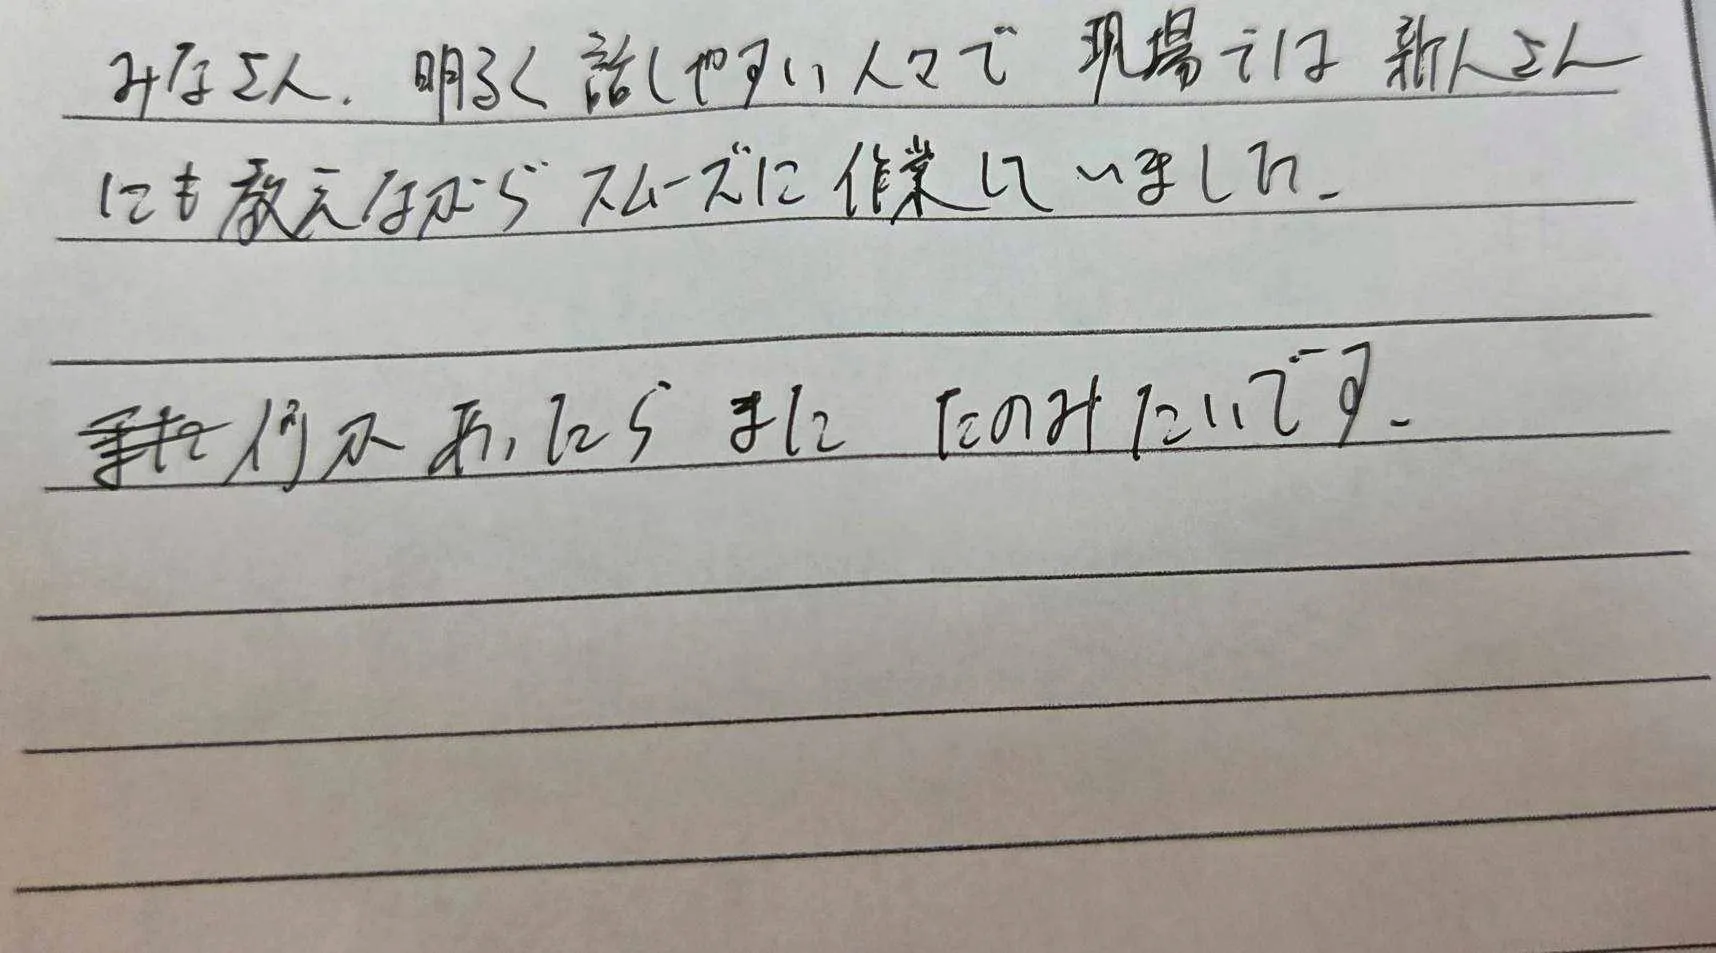 みなさん、明るく話しやすい人々で 現場では 新人さん
にも教えながら スムーズに 作業していました。
何かあったら また たのみたいです。